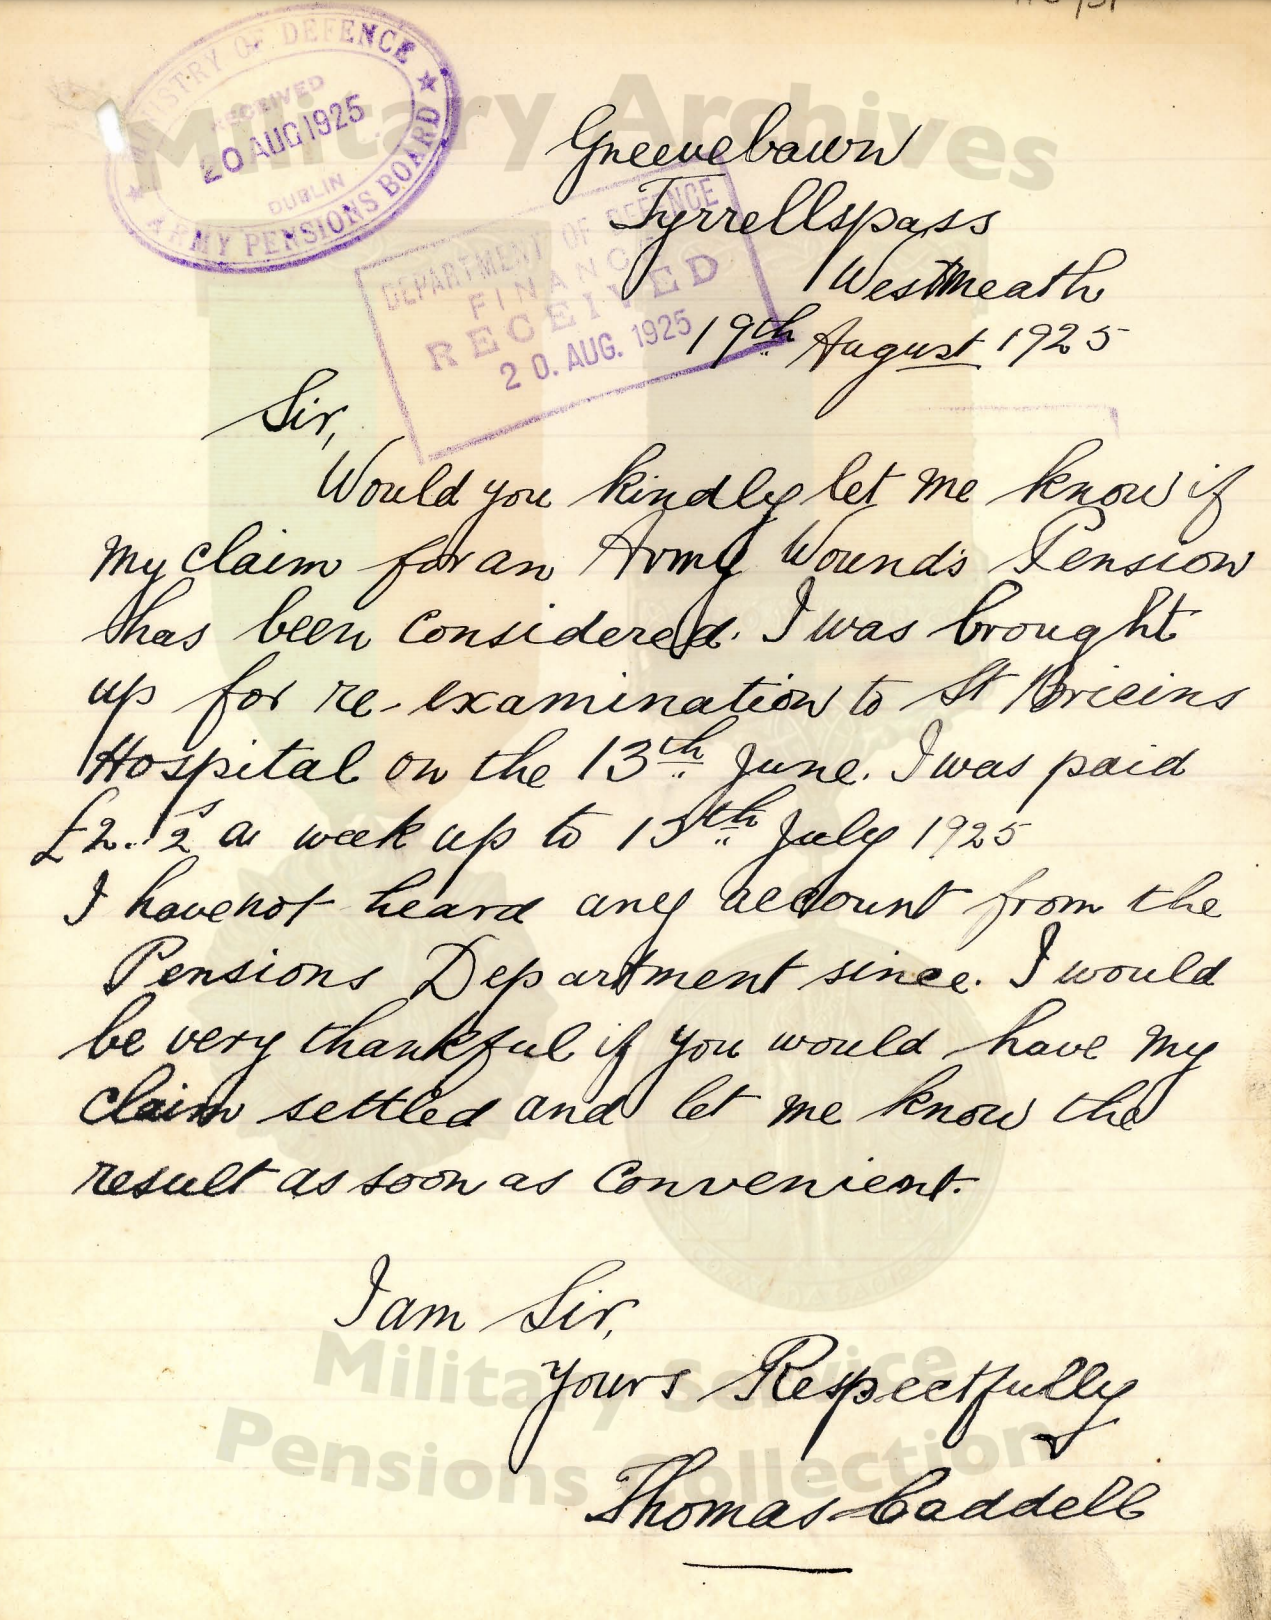 MINISTRY OF DEFENCE
RECEIVED
20 AUG 1925
DUBLIN
ARMY PENSIONS BOARD
Military Archives
Greevebawn
Tyrrellspass
Westmeath
19th August 1925
DEPARTMENT OF DEFENCE
FINANCE
RECEIVED
20. AUG. 1925
Sir,
Would you kindly let me know if
my claim for an Army Wounds Pension
has been considered. I was brought
up for re-examination to St Bricins
Hospital on the 13th June. I was paid
£2. 2s a week up to 15th July 1925
I have not heard any account from the
Pensions Department since. I would
be very thankful if you would have my
claim settled and let me know the
result as soon as convenient.
I am Sir,
Yours Respectfully
Thomas Caddell
Military Service
Pensions Collection